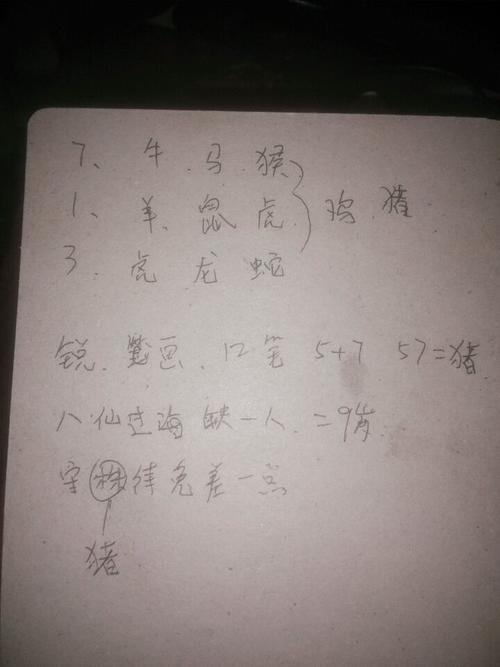 7、牛.马.猴
1、羊、鼠虎.鸡.猪
3.虎龙蛇
锐.笔画.12笔 5+7 57=猪
八仙过海缺一人.=9岁.
守株待兔差一点
猪